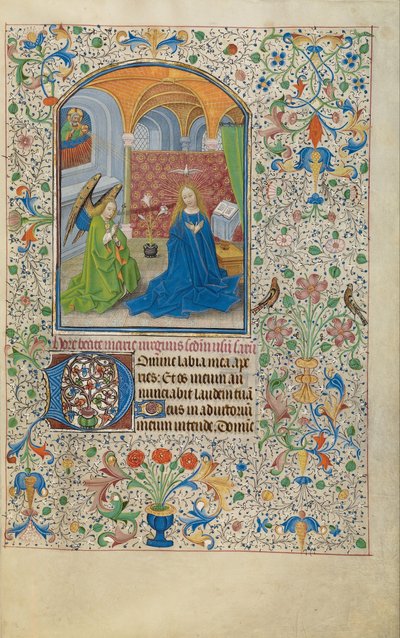 Hore beate marie virginis scdm usū Sarū
Domine labia mea ape
ries: Et os meum an
nunciabit laudem tuā
Deus in adiutoriū
meum intende. Domie